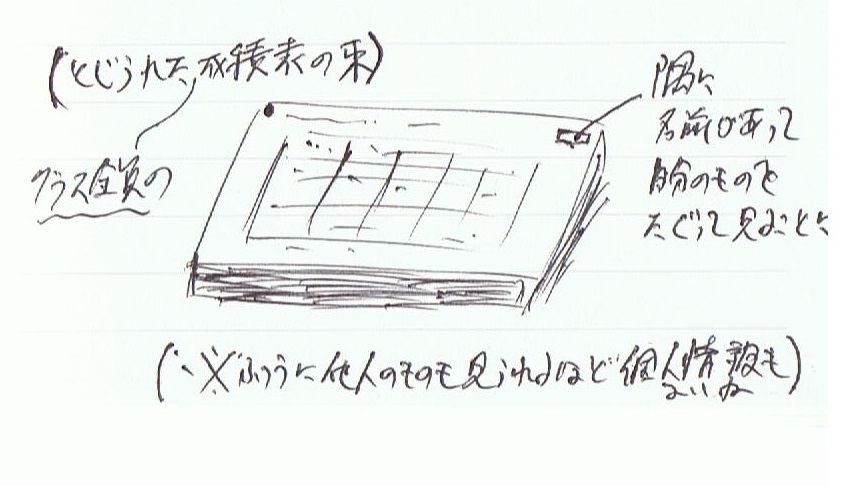 (とじられた成績表の束)
クラス全員の
隅に
名前があって
自分のものを
たぐって見ることに
(※ふつうに他人のものも見られるほど個人情報も)
ないね